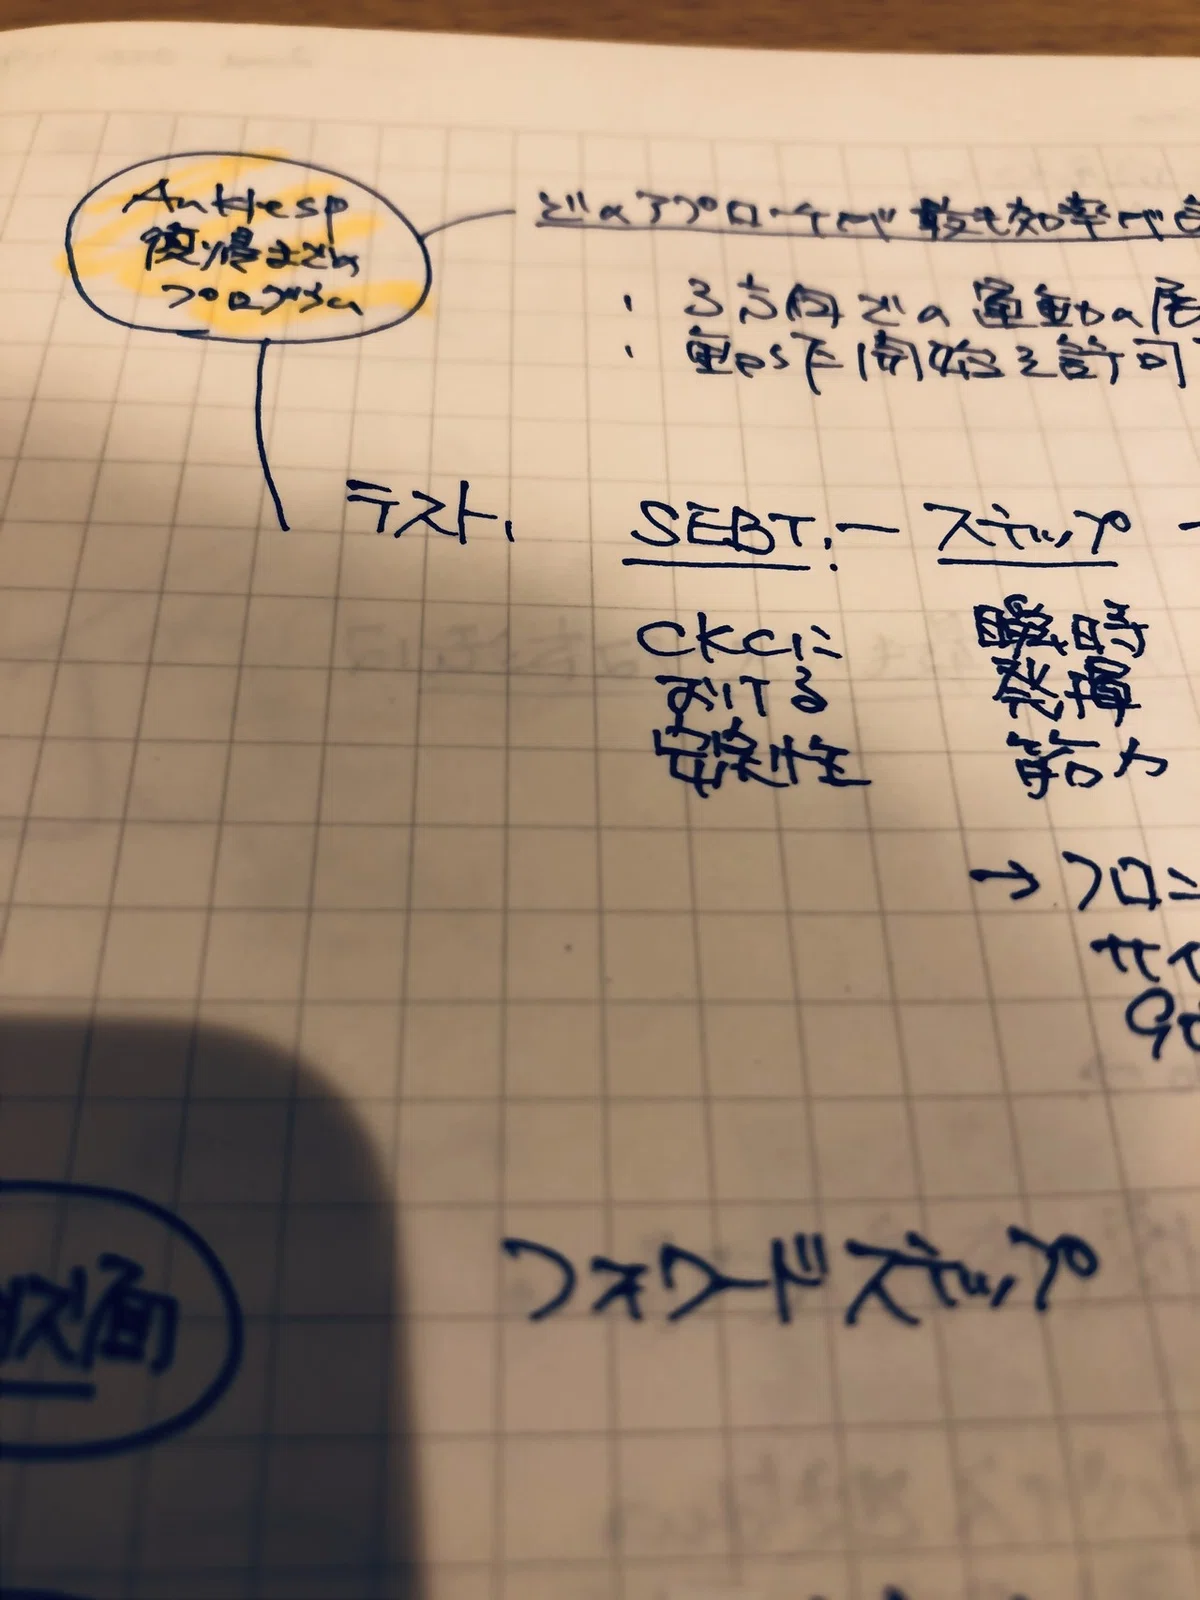 Anklesp
復帰までの
プログラム
どのアプローチが最も効率が
3方向での運動の
重心下 開始を許可
テスト,
SEBT. ー ステップ
CKCに
おける
安定性
瞬時
発揮
筋力
→ フロン
サイ
状面
フォワードステップ